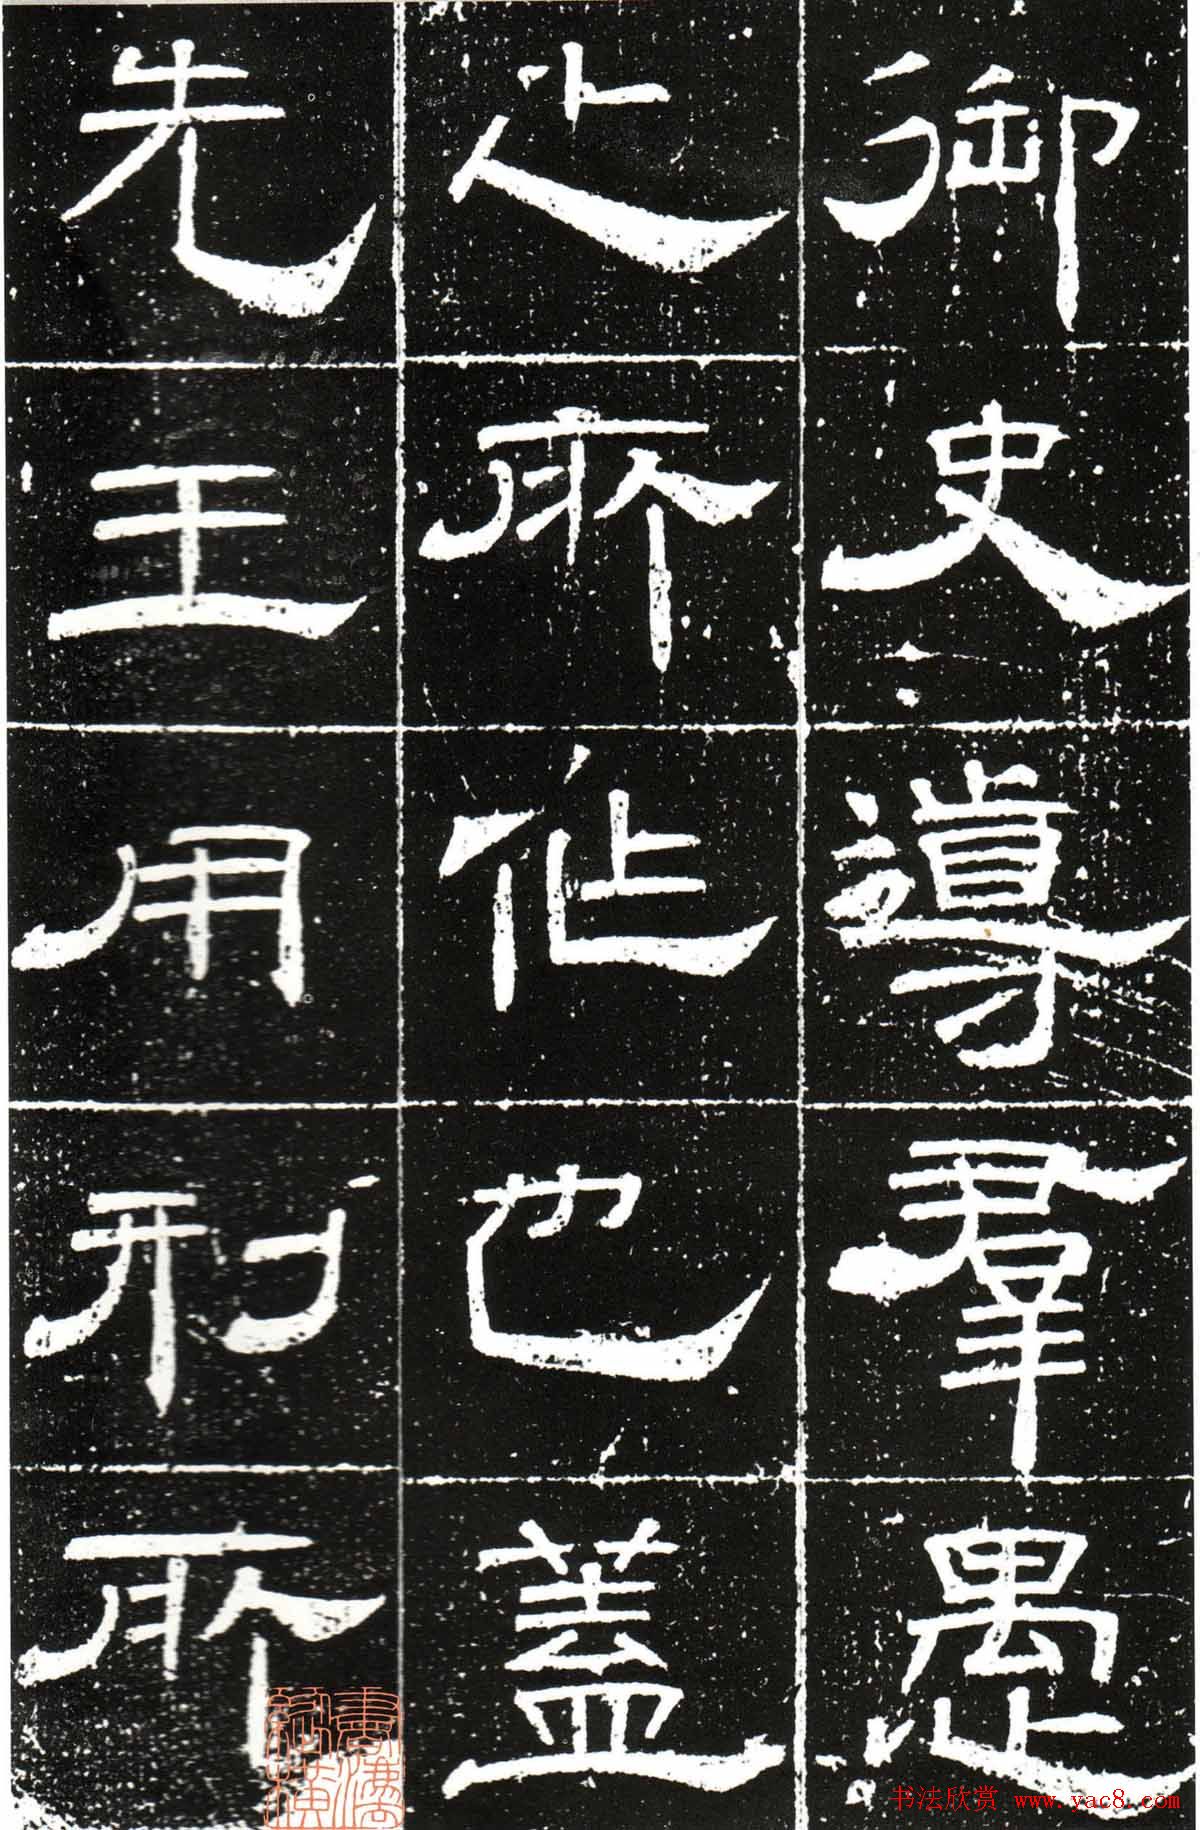 御史導羣愚
之所作也蓋
先王用刑所
书法欣赏 www.yac8.com